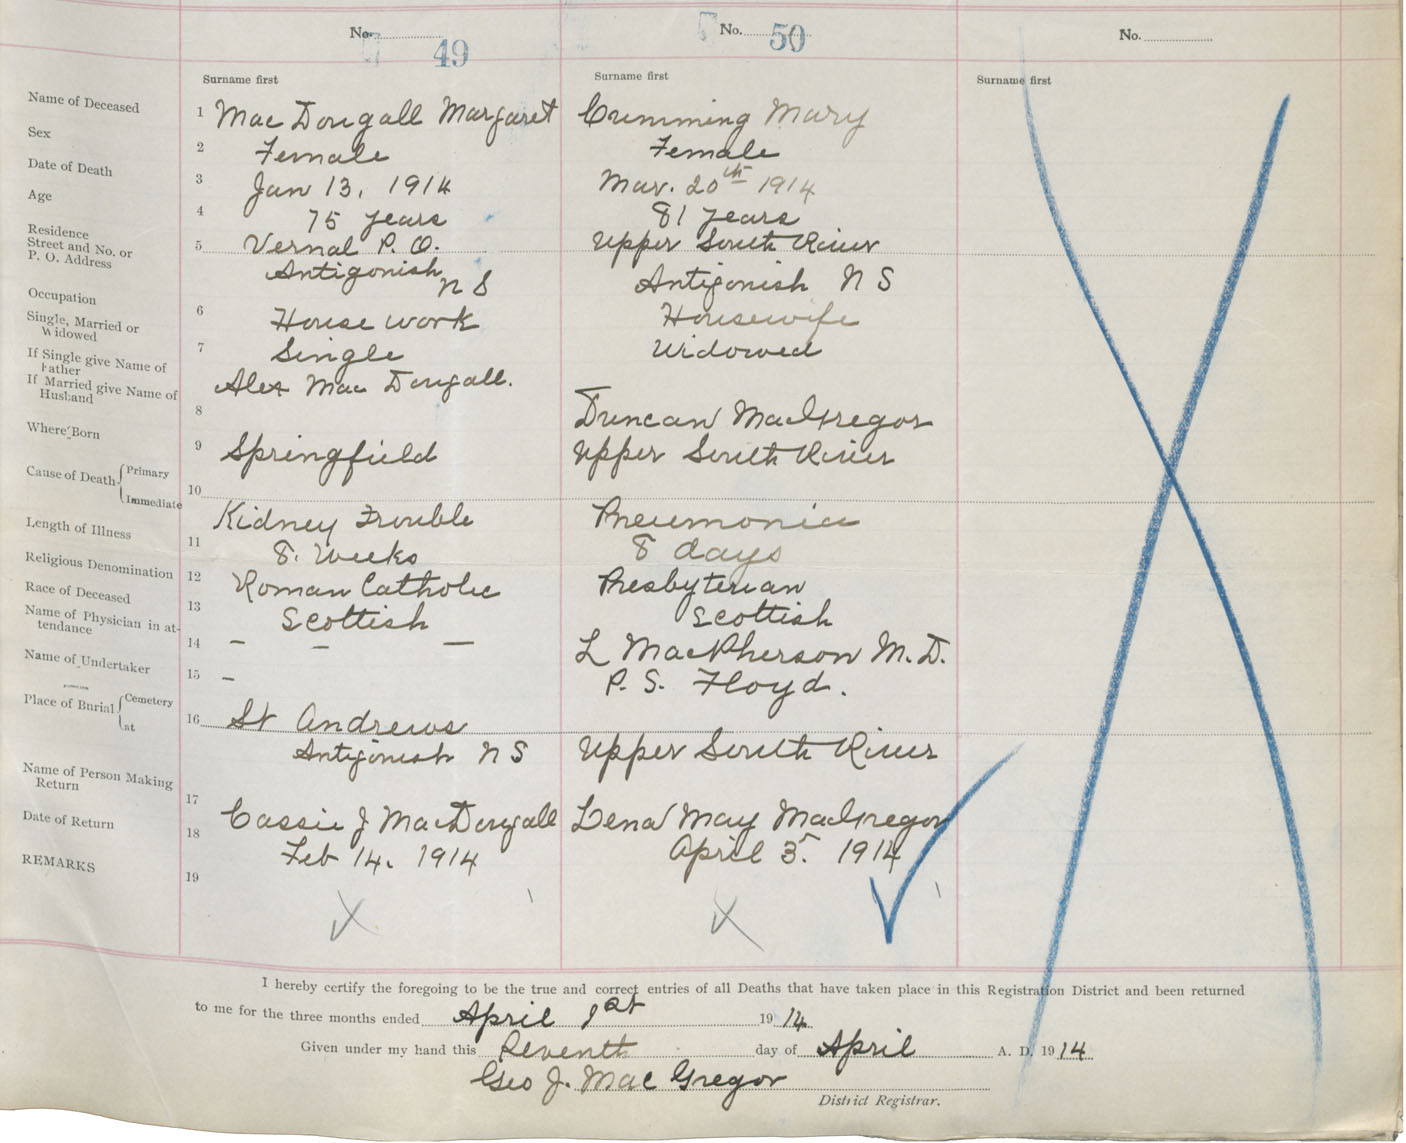 No. 49
No. 50
No.
Surname first
Surname first
Surname first
Name of Deceased 1 MacDougall Margaret Cumming Mary
Sex 2 Female Female
Date of Death 3 Jan 13, 1914 Mar. 20th 1914
Age 4 75 years 81 years
Residence
Street and No. or
P. O. Address
5 Vernal P. O. Upper South River
Antigonish N S Antigonish N S
Occupation 6 House work Housewife
Single, Married or
Widowed
7 Single Widowed
If Single give Name of
Father
Alex MacDougall.
If Married give Name of
Husband
8 Duncan MacGregor
Where Born 9 Springfield Upper South River
Cause of Death { Primary
Immediate
10 Kidney Trouble Pneumonia
Length of Illness 11 8. Weeks 8 days
Religious Denomination 12 Roman Catholic Presbyterian
Race of Deceased 13 Scottish Scottish
Name of Physician in at-
tendance
14 – – – L MacPherson M. D.
Name of Undertaker 15 – P. S. Floyd.
Place of Burial { Cemetery
at
16 St Andrews
Antigonish N S Upper South River
Name of Person Making
Return
17 Cassie J MacDougall Lena May MacGregor
Date of Return 18 Feb 14. 1914 April 3. 1914
REMARKS 19
I hereby certify the foregoing to be the true and correct entries of all Deaths that have taken place in this Registration District and been returned
to me for the three months ended April 1st 1914
Given under my hand this Seventh day of April A. D. 1914
Geo J. MacGregor
District Registrar.